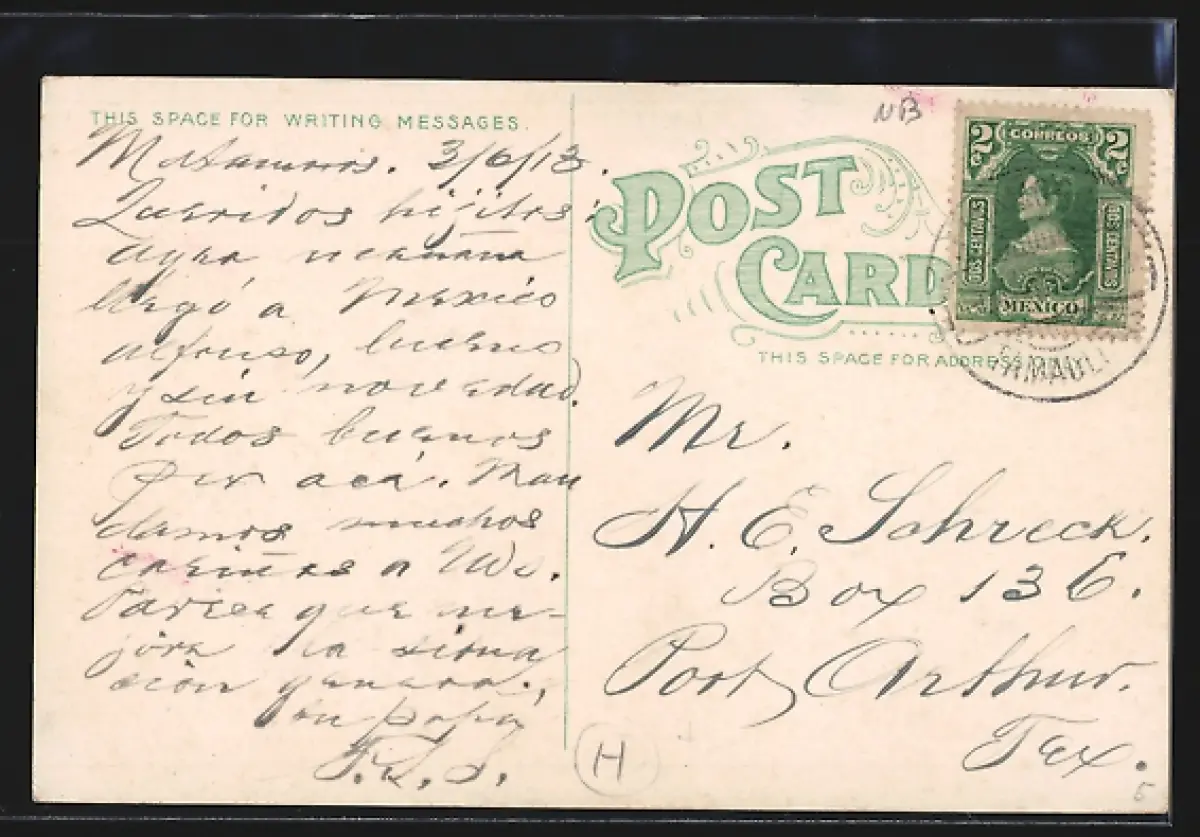 THIS SPACE FOR WRITING MESSAGES.
Matamoros. 3/6/13.
Queridos hijitos:
ayer mañana
llegó a Mexico
Alfonso, bueno
y sin novedad.
Todos buenos
por acá. Man
damos muchos
cariños a Uds.
Parece que me-
jora la situa
ción general.
Su papá
F. S.
NB
POST CARD
2 CORREOS 2
DOS CENTAVOS
DOS CENTAVOS
MEXICO
THIS SPACE FOR ADDRESS
AMAULI
Mr.
H. E. Schreck.
Box 136.
Port Arthur.
Tex.
H
5